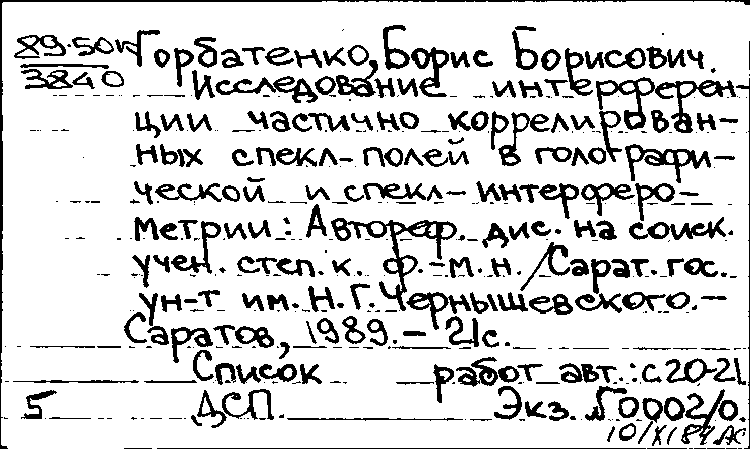 89-50к Горбатенко, Борис Борисович.
3840 Исследование интерферен-
ции частично коррелирован-
ных спекл-полей в голографи-
ческой и спекл-интерферо-
метрии: Автореф. дис. на соиск.
учен. степ. к. ф.-м. н. / Сарат. гос.
ун-т им. Н. Г. Чернышевского. -
Саратов, 1989. - 21с.
Список работ авт.: с. 20-21
5 ДСП. Экз. N 0002/0.